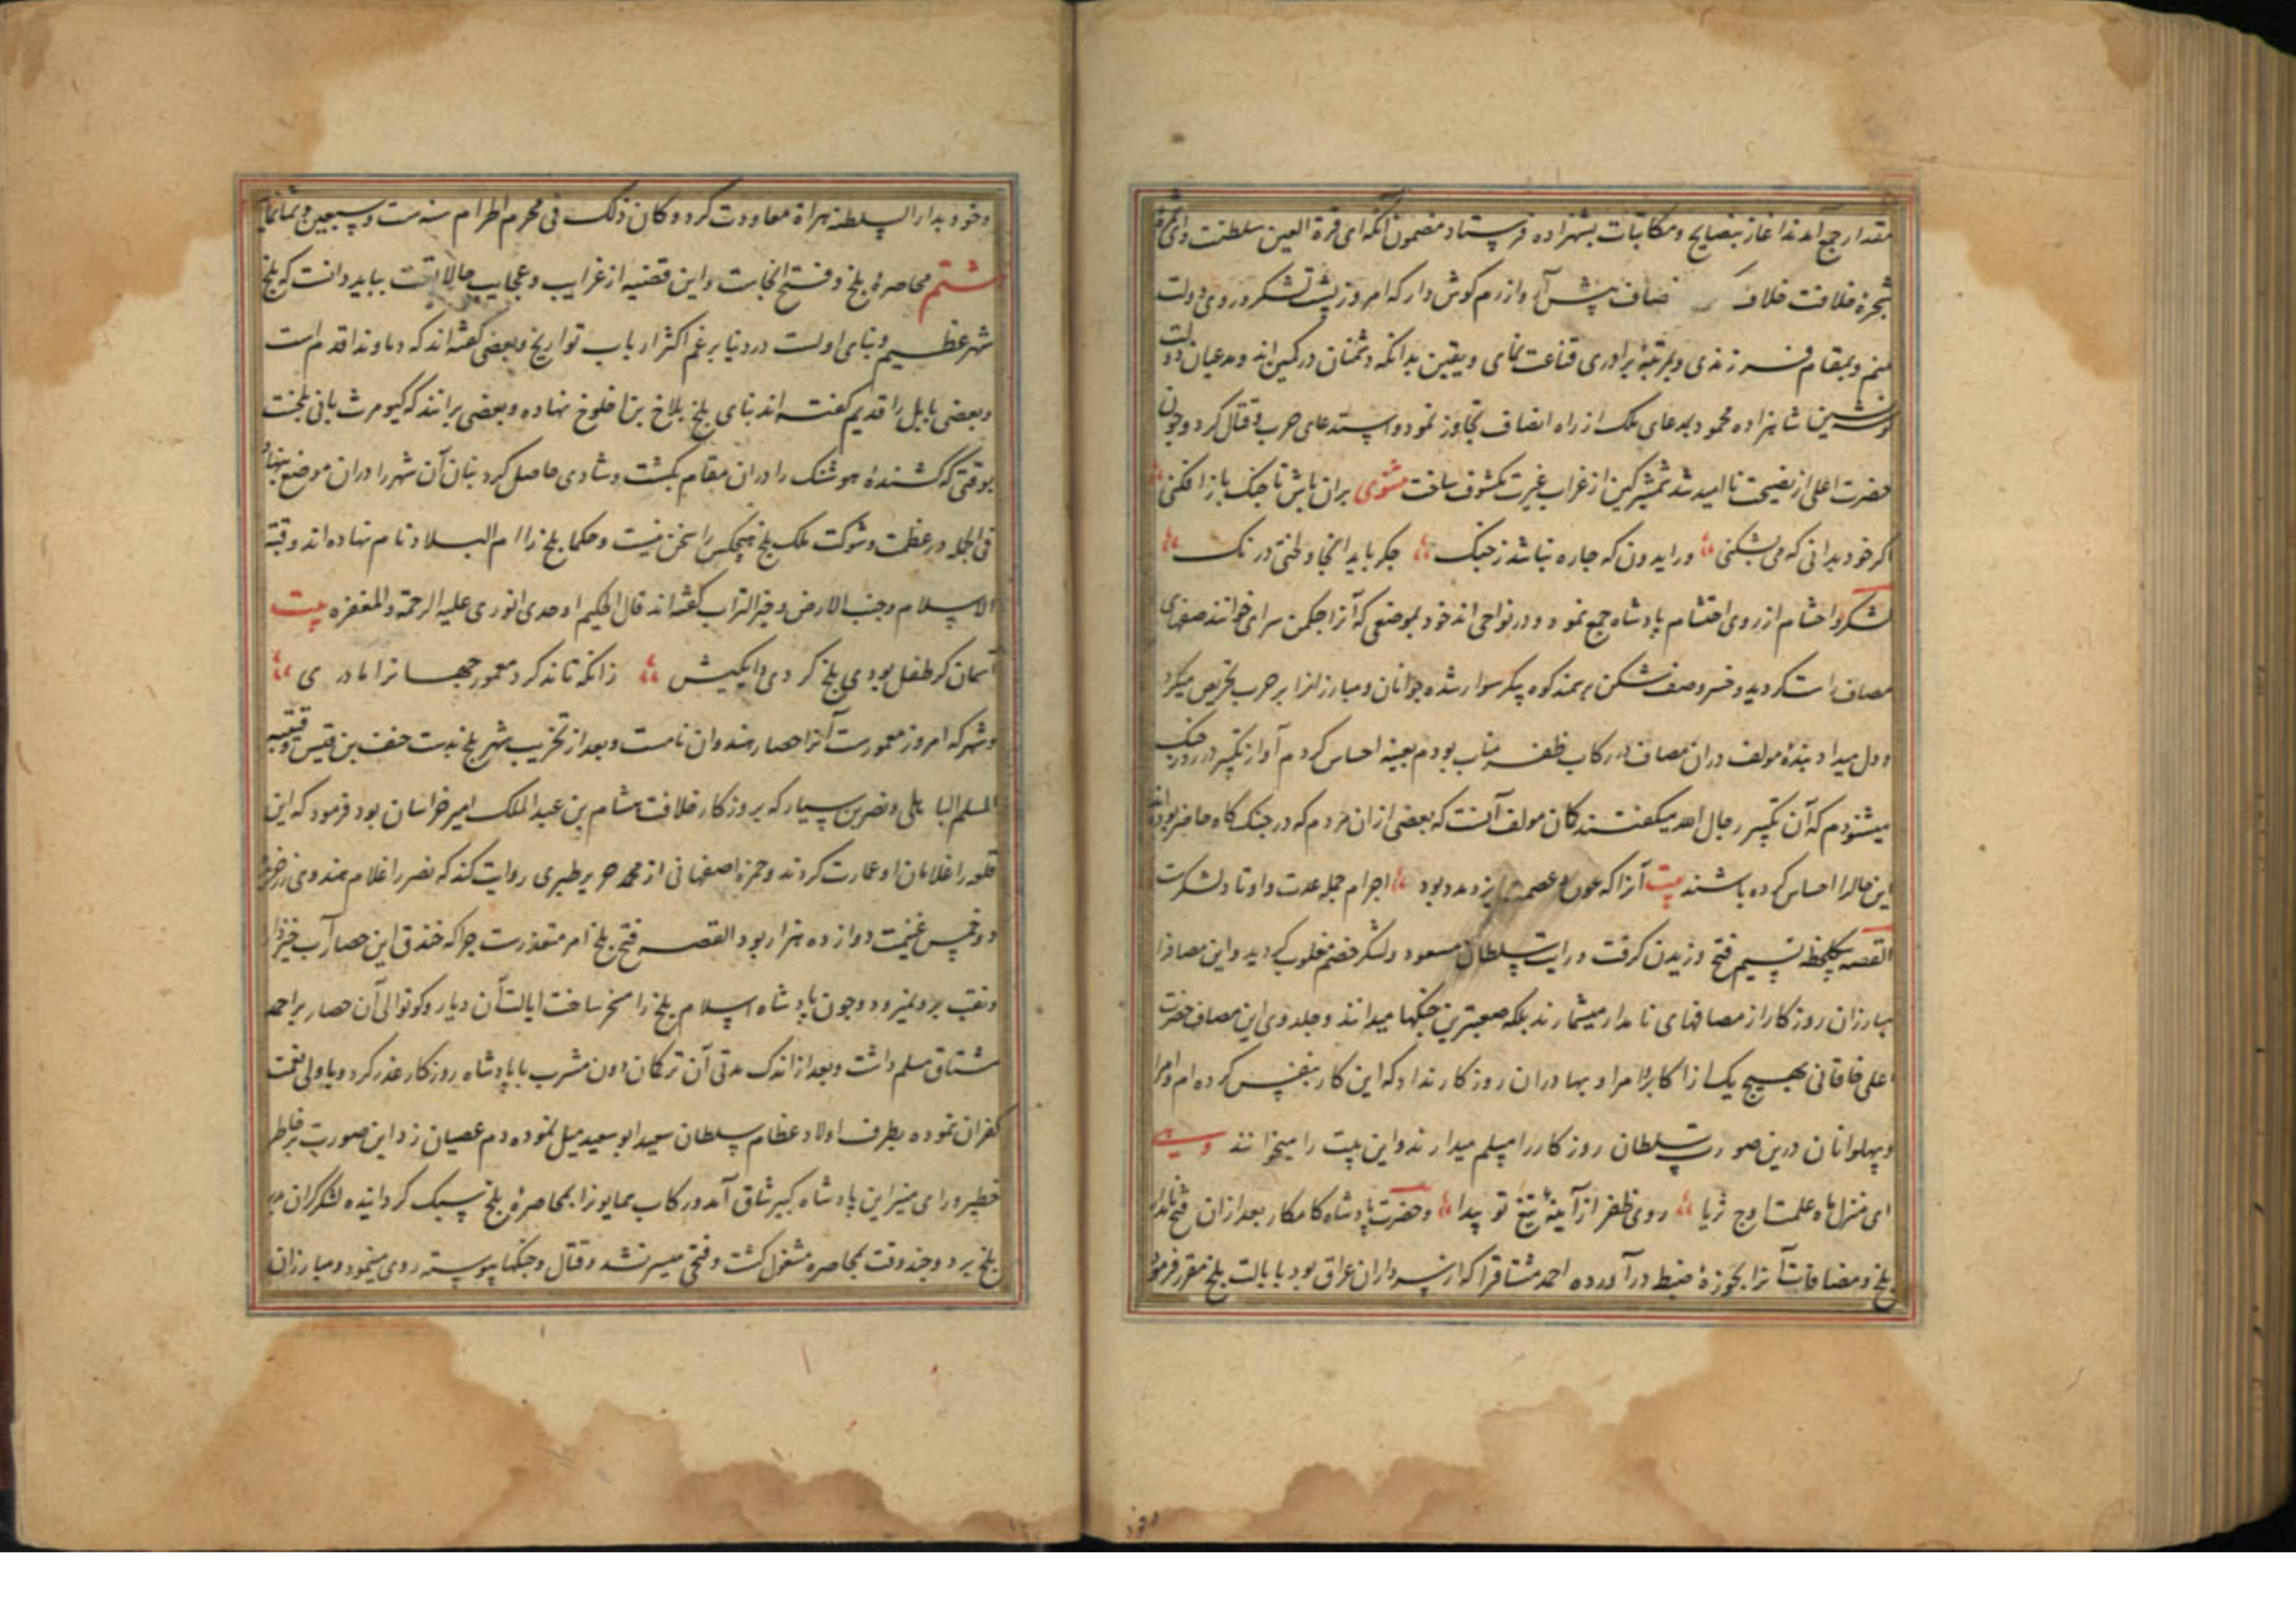 مقدار جمع آمدند اغاز بنصایح و مکاتبات بشهزاده فرستاد مضمون آنکه ای قرة العین سلطنت وای ثمرهٔ
شجرهٔ خلافت خلاف انصاف پیش آر وازرم کوش دار که امروز پشت لشکر و روی دولت
منم و بمقام فرزندی و بمرتبهٔ برادری قناعت نمای و یقین بدانکه دشمنان در کمین اند و مدعیان دولت
کوشه نشین شاهزاده محمود بمدعای ملک از راه انصاف تجاوز نمود و استدعای حرب و قتال کرد و چون
حضرت اعلی از نصیحت نا امید شد شمشیر کین از غراب غیرت مکشوف ساخت مثنوی بران باش تا جنک باز افکنی
اکر خود بدانی که می بشکنی ورایدون که جاره نباشد ز جنک جکر باید انجا و لختی درنک
لشکر و احشام از روی احتشام پادشاه جمع نمود و در نواحی اندخود بموضعی که آنرا جکمن سرای خوانند صفهای
مصاف راست کردید و خسرو صف شکن بر سمند کوه پیکر سوار شده جوانان و مبارزانرا بر حرب تحریص میکرد
و دل میداد بندهٔ مولف دران مصاف در رکاب ظفر مناب بودم بعینه احساس کردم آواز تکبیر در روز جنک
میشنودم که آن تکبیر رجال الله میکفتند کمان مولف آنست که بعضی ازان مردم که در جنک کاه حاضر بوده اند
این حالرا احساس کرده باشند بیت آنرا که عون و عصمت ایزد مدد بود اجرام جمله عدت و اوتاد لشکرست
القصه بیکلحظه نسیم فتح وزیدن کرفت و رایت سلطان مسعود و لشکر خصم مغلوب کردید و این مصاف را
مبارزان روزکار از مصافهای نامدار میشمارند بلکه صعبترین جنکها میدانند و جلدوی این مصاف حضرت
اعلی خاقانی بهیچ یک از اکابر و امرا و بهادران روزکار نداد که این کار بنفس کرده ام و امرا
و پهلوانان درین صورت سلطان روزکار را مسلم میدارند و این بیت را میخوانند
ای منزل ماه علمت اوج ثریا روی ظفر از آینهٔ تیغ تو پیدا و حضرت پادشاه کامکار بعد ازان فتح نامدار
بلخ و مضافات آنرا بحوزهٔ ضبط در آورده احمد مشتاق را که از سرداران عراق بود بایالت بلخ مقرر فرمود
وخود
وخود بدار السلطنه هراة معاودت کرد و کان ذلک فی محرم الحرام سنه ست و سبعین و ثمانمایه
هشتم محاصرهٔ بلخ و فتح انجاست و این قضیه از غرایب و عجایب حالاتست بباید دانست که بلخ
شهر عظیم و بنای اولست در دنیا برغم اکثر ارباب تواریخ و بعضی کفته اند که دماوند اقدم است
و بعضی بابل را قدیم کفته اند بنای بلخ بلاخ بن اخلوخ نهاده و بعضی برانند که کیومرث بانی بلخست
بوقتی که کشندهٔ هوشنک را دران مقام بکشت و شادی حاصل کرد بنیان آن شهر را دران موضع بنهاد
فی الجمله در عظمت و شوکت ملک بلخ هیچکس را سخن نیست و حکما بلخ را ام البلاد نام نهاده اند و قبة
الاسلام و جنت الارض و خیر التراب کفته اند قال الحکیم اوحدی انوری علیه الرحمة و المغفره بیت
آسمان کر طفل بودی بلخ کردی دایکیش زانکه تاند کرد معمور جهانرا مادری
و شهر که امروز معمورست آنرا حصار هندوان نامست و بعد از تخریب شهر بلخ بدست حنف بن قیس و قتیبه
المسلم الباهلی و نصر بن سیار که بروزکار خلافت هشام بن عبد الملک امیر خراسان بود فرمود که این
قلعه را غلامان او عمارت کردند و حمزه اصفهانی از محمد جریر طبری روایت کند که نصر را غلام هندوی زر خرید
و خمس غنیمت دوازده هزار بود القصه فتح بلخ امر متعذرست جرا که خندق این حصار آب خیز دارد
و نقب برو نمیرود و جون پادشاه اسلام بلخ را مسخر ساخت ایالت آن دیار و کوتوالی آن حصار بر احمد
مشتاق مسلم داشت و بعد از اندک مدتی آن ترکان دون مشرب با پادشاه روزکار غدر کرد و با ولی نعمت
کفران نموده بطرف اولاد عظام سلطان سعید ابو سعید میل نموده دم عصیان زد این صورت بر خاطر
خطیر و رای منیر این پادشاه کبیر شاق آمد و رکاب همایونرا بمحاصرهٔ بلخ سبک کردانیده لشکر کران
بلخ برد و چند وقت بمحاصره مشغول کشت و فتحی میسر نشد و قتال و جنکها پیوسته روی مینمود و مبارزان